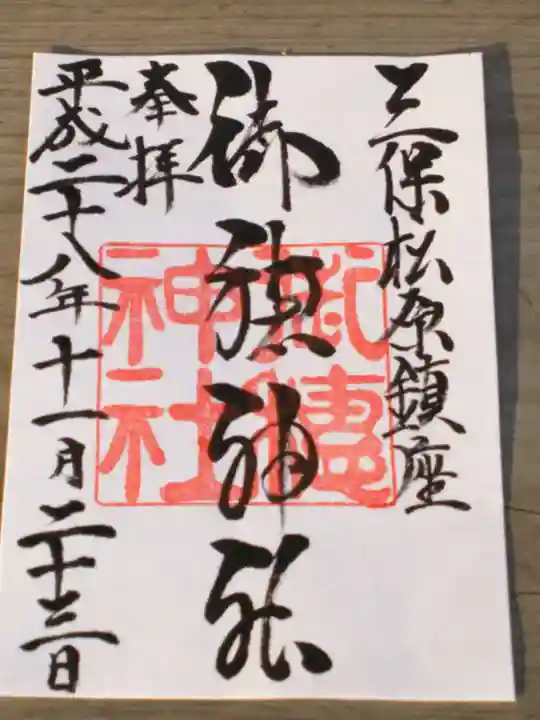 三保松原鎮座
御穂神社
奉拝
平成二十八年十一月二十三日
御穗神社